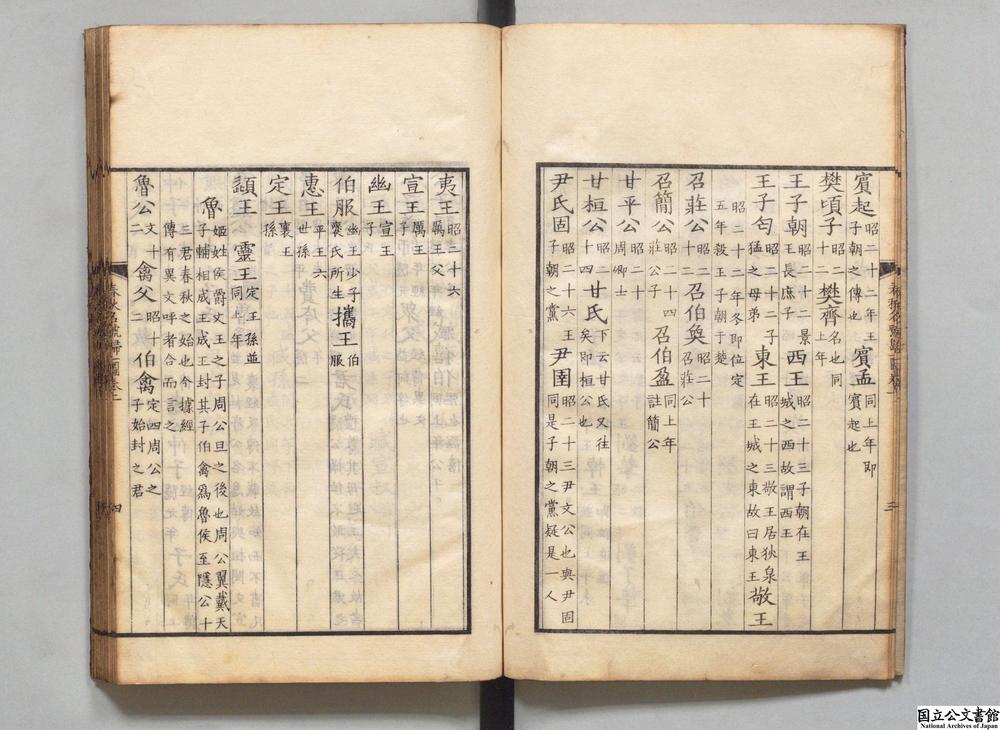 賓起昭二十二年王子朝之傅也賓孟同上年即賓起也
樊頃子昭二十二樊齊名也同上年
王子朝昭二十二景王長庶子西王昭二十三子朝在王城之西故謂西王
王子匄昭二十二子猛之母弟東王昭二十三敬王居狄泉在王城之東故曰東王敬王
昭二十二年冬即位定五年殺王子朝于楚
召莊公昭二十二召伯奐昭二十召莊公
召簡公昭二十四莊公子召伯盈同上年註簡公
甘平公昭二十周卿士
甘桓公昭二十四甘氏下云甘氏又往矣即桓公也
尹氏固昭二十六王子朝之黨尹圉昭二十三尹文公也與尹固同是子朝之黨疑是一人
三
夷王昭二十六厲王父
宣王厲王子
幽王宣王子
伯服幽王少子伯褒氏所生攜王伯服
惠王平王六世孫
定王襄王孫
頃王靈王定王孫並同上年
魯姬姓侯爵文王之子周公旦之後也周公翼戴天子輔相成王成王封其子伯禽爲魯侯至隱公十
三君春秋之始也今據經傳有異文呼者合而言之
魯公文十二禽父昭十二伯禽定四周公之子始封之君
春秋名號歸一圖卷上
四
国立公文書館
National Archives of Japan